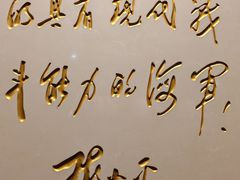 的具有现代战
斗能力的海军！
邓小平